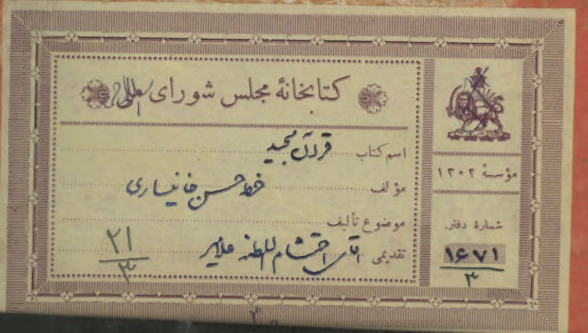 کتابخانهٔ مجلس شورای
اسم کتاب قرآن مجید
مؤلف خط حسن خانساری
موضوع تألیف
تقدیمی آقای احتشام السلطنه علامیر
۲۱
۳
مؤسسهٔ ۱۳۰۲
شمارهٔ دفتر
۱۶۷۱
۳
۳